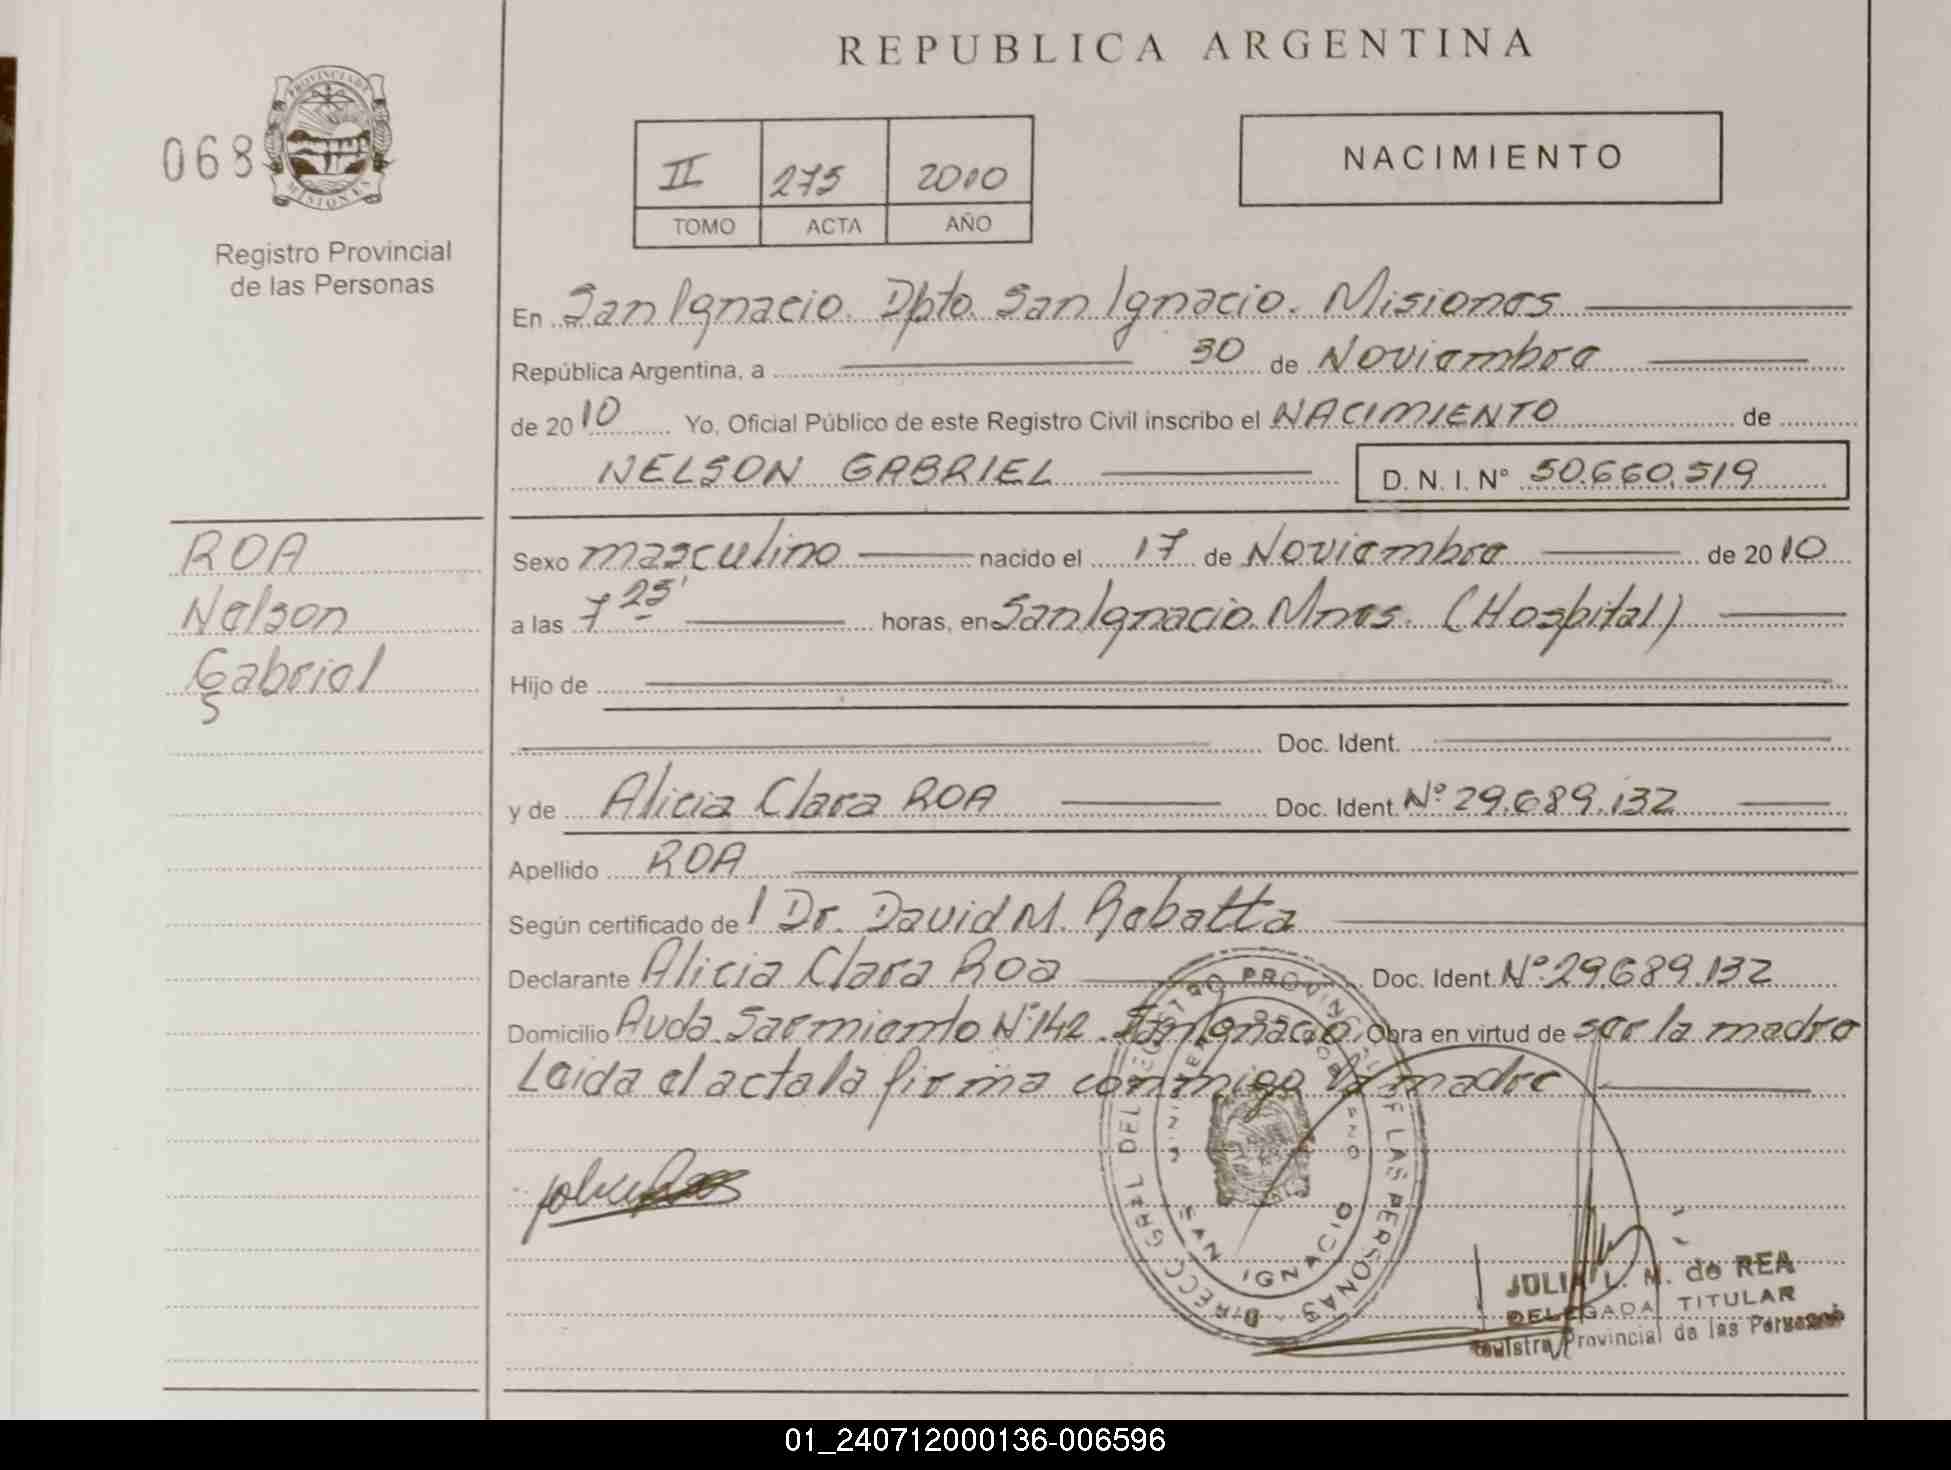 REPUBLICA ARGENTINA
068
PROVINCIA DE
MISIONES
Registro Provincial
de las Personas
II 275 2010
TOMO ACTA AÑO
NACIMIENTO
En San Ignacio. Dpto. San Ignacio. Misiones
República Argentina, a 30 de Noviembre
de 2010 Yo, Oficial Público de este Registro Civil inscribo el NACIMIENTO de
NELSON GABRIEL D. N. I. Nº 50.660.519
ROA
Nelson
Gabriel
5
Sexo masculino nacido el 17 de Noviembre de 2010
a las 7 25' horas, en San Ignacio Mnes. (Hospital)
Hijo de
Doc. Ident.
y de Alicia Clara ROA Doc. Ident. Nº 29.689.132
Apellido ROA
Según certificado de l Dr. David M. Rabatta
Declarante Alicia Clara Roa Doc. Ident. Nº 29.689.132
Domicilio Avda. Sarmiento Nº 142. San Ignacio Obra en virtud de ser la madre
Leida el acta la firma conmigo la madre
DIRECC GRAL DEL REGISTRO PROVINCIAL DE LAS PERSONAS
SAN IGNACIO
JULIA L. M. de REA
DELEGADA TITULAR
Provincial de las Personas
01_240712000136-006596